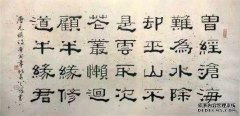 曾經滄海
難為水除
却巫山不
是雲取次
花叢懶迴
顧半緣修
道半緣君